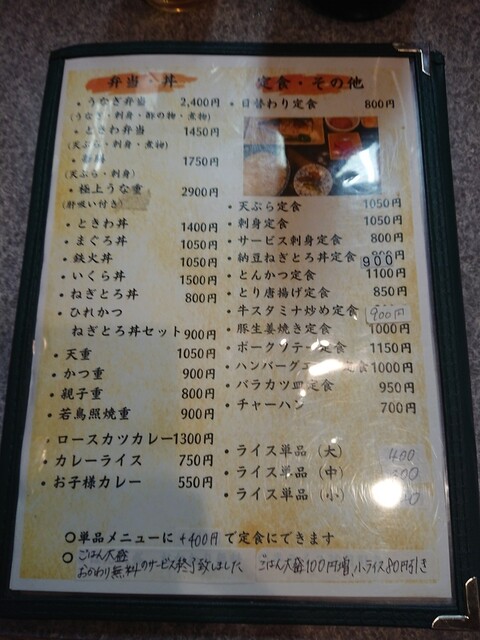 弁当・丼
・うなぎ弁当 2,400円
(うなぎ・刺身・酢の物・煮物)
・ときわ弁当 1450円
(天ぷら・刺身・煮物)
1750円
(天ぷら・刺身)
・極上うな重 2900円
(肝吸い付き)
・ときわ丼 1400円
・まぐろ丼 1050円
・鉄火丼 1050円
・いくら丼 1500円
・ねぎとろ丼 800円
・ひれかつ
ねぎとろ丼セット 900円
・天重 1050円
・かつ重 900円
・親子重 800円
・若鳥照焼重 900円
・ロースカツカレー 1300円
・カレーライス 750円
・お子様カレー 550円
定食・その他
・日替わり定食 800円
・天ぷら定食 1050円
・刺身定食 1050円
・サービス刺身定食 800円
・納豆ねぎとろ丼定食 900円
・とんかつ定食 1100円
・とり唐揚げ定食 850円
・牛スタミナ炒め定食 900円
・豚生姜焼き定食 1000円
・ポークソテー定食 1150円
・ハンバーグ 定食 1000円
・バラカツ皿定食 950円
・チャーハン 700円
・ライス単品（大） 400
・ライス単品（中）
・ライス単品（小）
○単品メニューに+400円で定食にできます
○ごはん大盛
おかわり無料のサービス終了致しました ごはん大盛100円増、小ライス80円引き